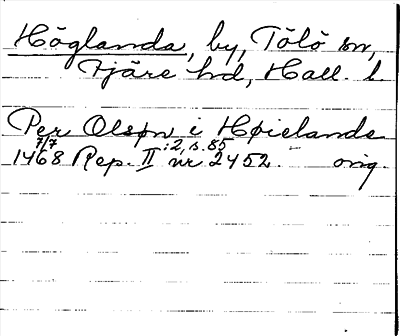 Höglanda, by, Tölö sn,
Fjäre hd, Hall. l.
Per Olsøn i Høielande
7/7 :2, s. 85
1468 Rep. II nr 2452. orig.